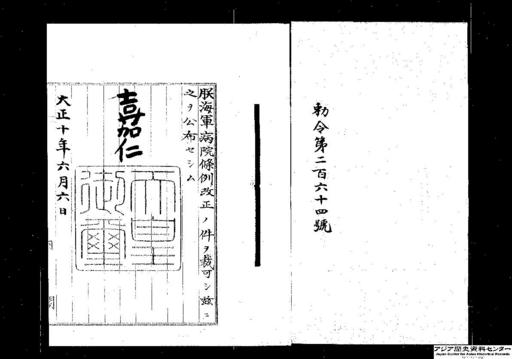 勅令第二百六十四號
朕海軍病院條例改正ノ件ヲ裁可シ玆ニ
之ヲ公布セシム
嘉仁
天皇
御璽
大正十年六月六日
アジア歴史資料センター
Japan Center for Asian Historical Records